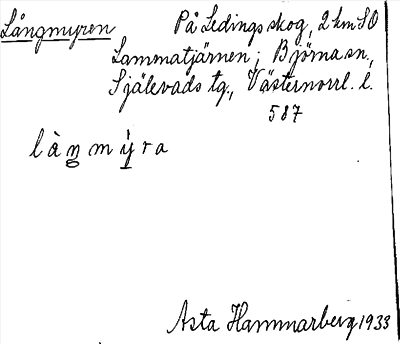 Långmyren På Ledingsskog, 2 km SO
Lammatjärnen; Björna sn,
Själevads tg., Västernorrl. l.
587
làŋmỳra
Asta Hammarberg 1933